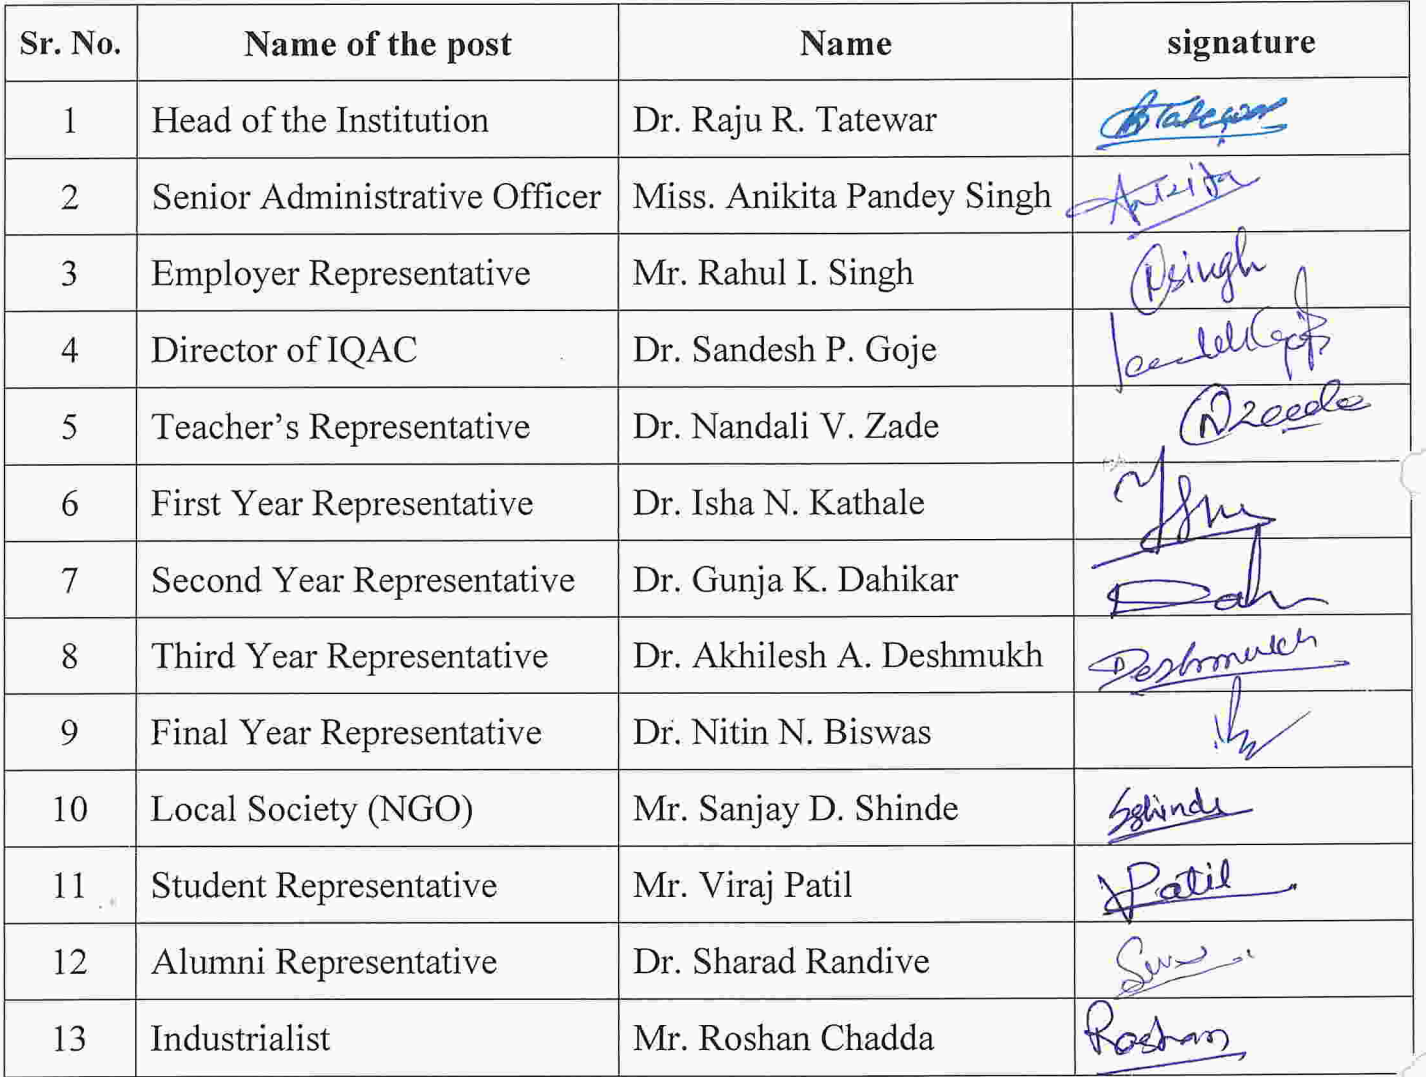 Sr. No. Name of the post Name signature
1 Head of the Institution Dr. Raju R. Tatewar Tatewar
2 Senior Administrative Officer Miss. Anikita Pandey Singh
3 Employer Representative Mr. Rahul I. Singh Rsingh
4 Director of IQAC Dr. Sandesh P. Goje
5 Teacher's Representative Dr. Nandali V. Zade
6 First Year Representative Dr. Isha N. Kathale
7 Second Year Representative Dr. Gunja K. Dahikar
8 Third Year Representative Dr. Akhilesh A. Deshmukh Deshmukh
9 Final Year Representative Dr. Nitin N. Biswas
10 Local Society (NGO) Mr. Sanjay D. Shinde SShinde
11 Student Representative Mr. Viraj Patil VPatil
12 Alumni Representative Dr. Sharad Randive
13 Industrialist Mr. Roshan Chadda Roshan